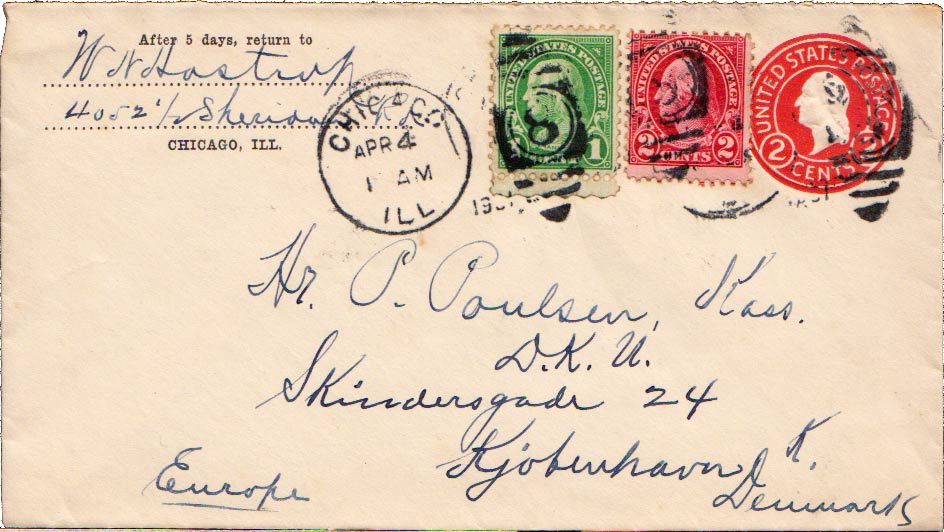 After 5 days, return to
W N Hostrup
4052 1/2 Sheridan Rd
CHICAGO, ILL.
CHICAGO
APR 4
1 AM
ILL
1931
UNITED STATES POSTAGE
1 1
8
UNITED STATES POSTAGE
2 CENTS 2
UNITED STATES POSTAGE
2 CENTS 2
Hr. P. Poulsen, Kass.
D.K.U.
Skindersgade 24
Kjobenhavn K.
Denmark
Europe